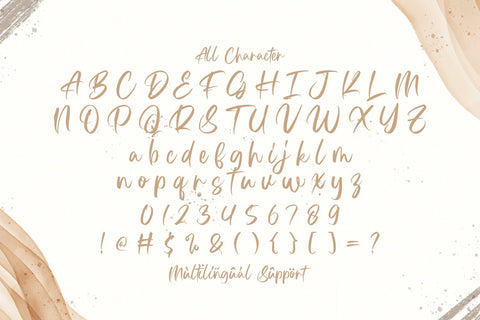 All Character
A B C D E F G H I J K L M
N O P Q R S T U V W X Y Z
a b c d e f g h i j k l m
n o p q r s t u v w x y z
0 1 2 3 4 5 6 7 8 9
! @ # $ % & ( ) { } [ ] = ?
Mùltílíñgûâl Sûppört